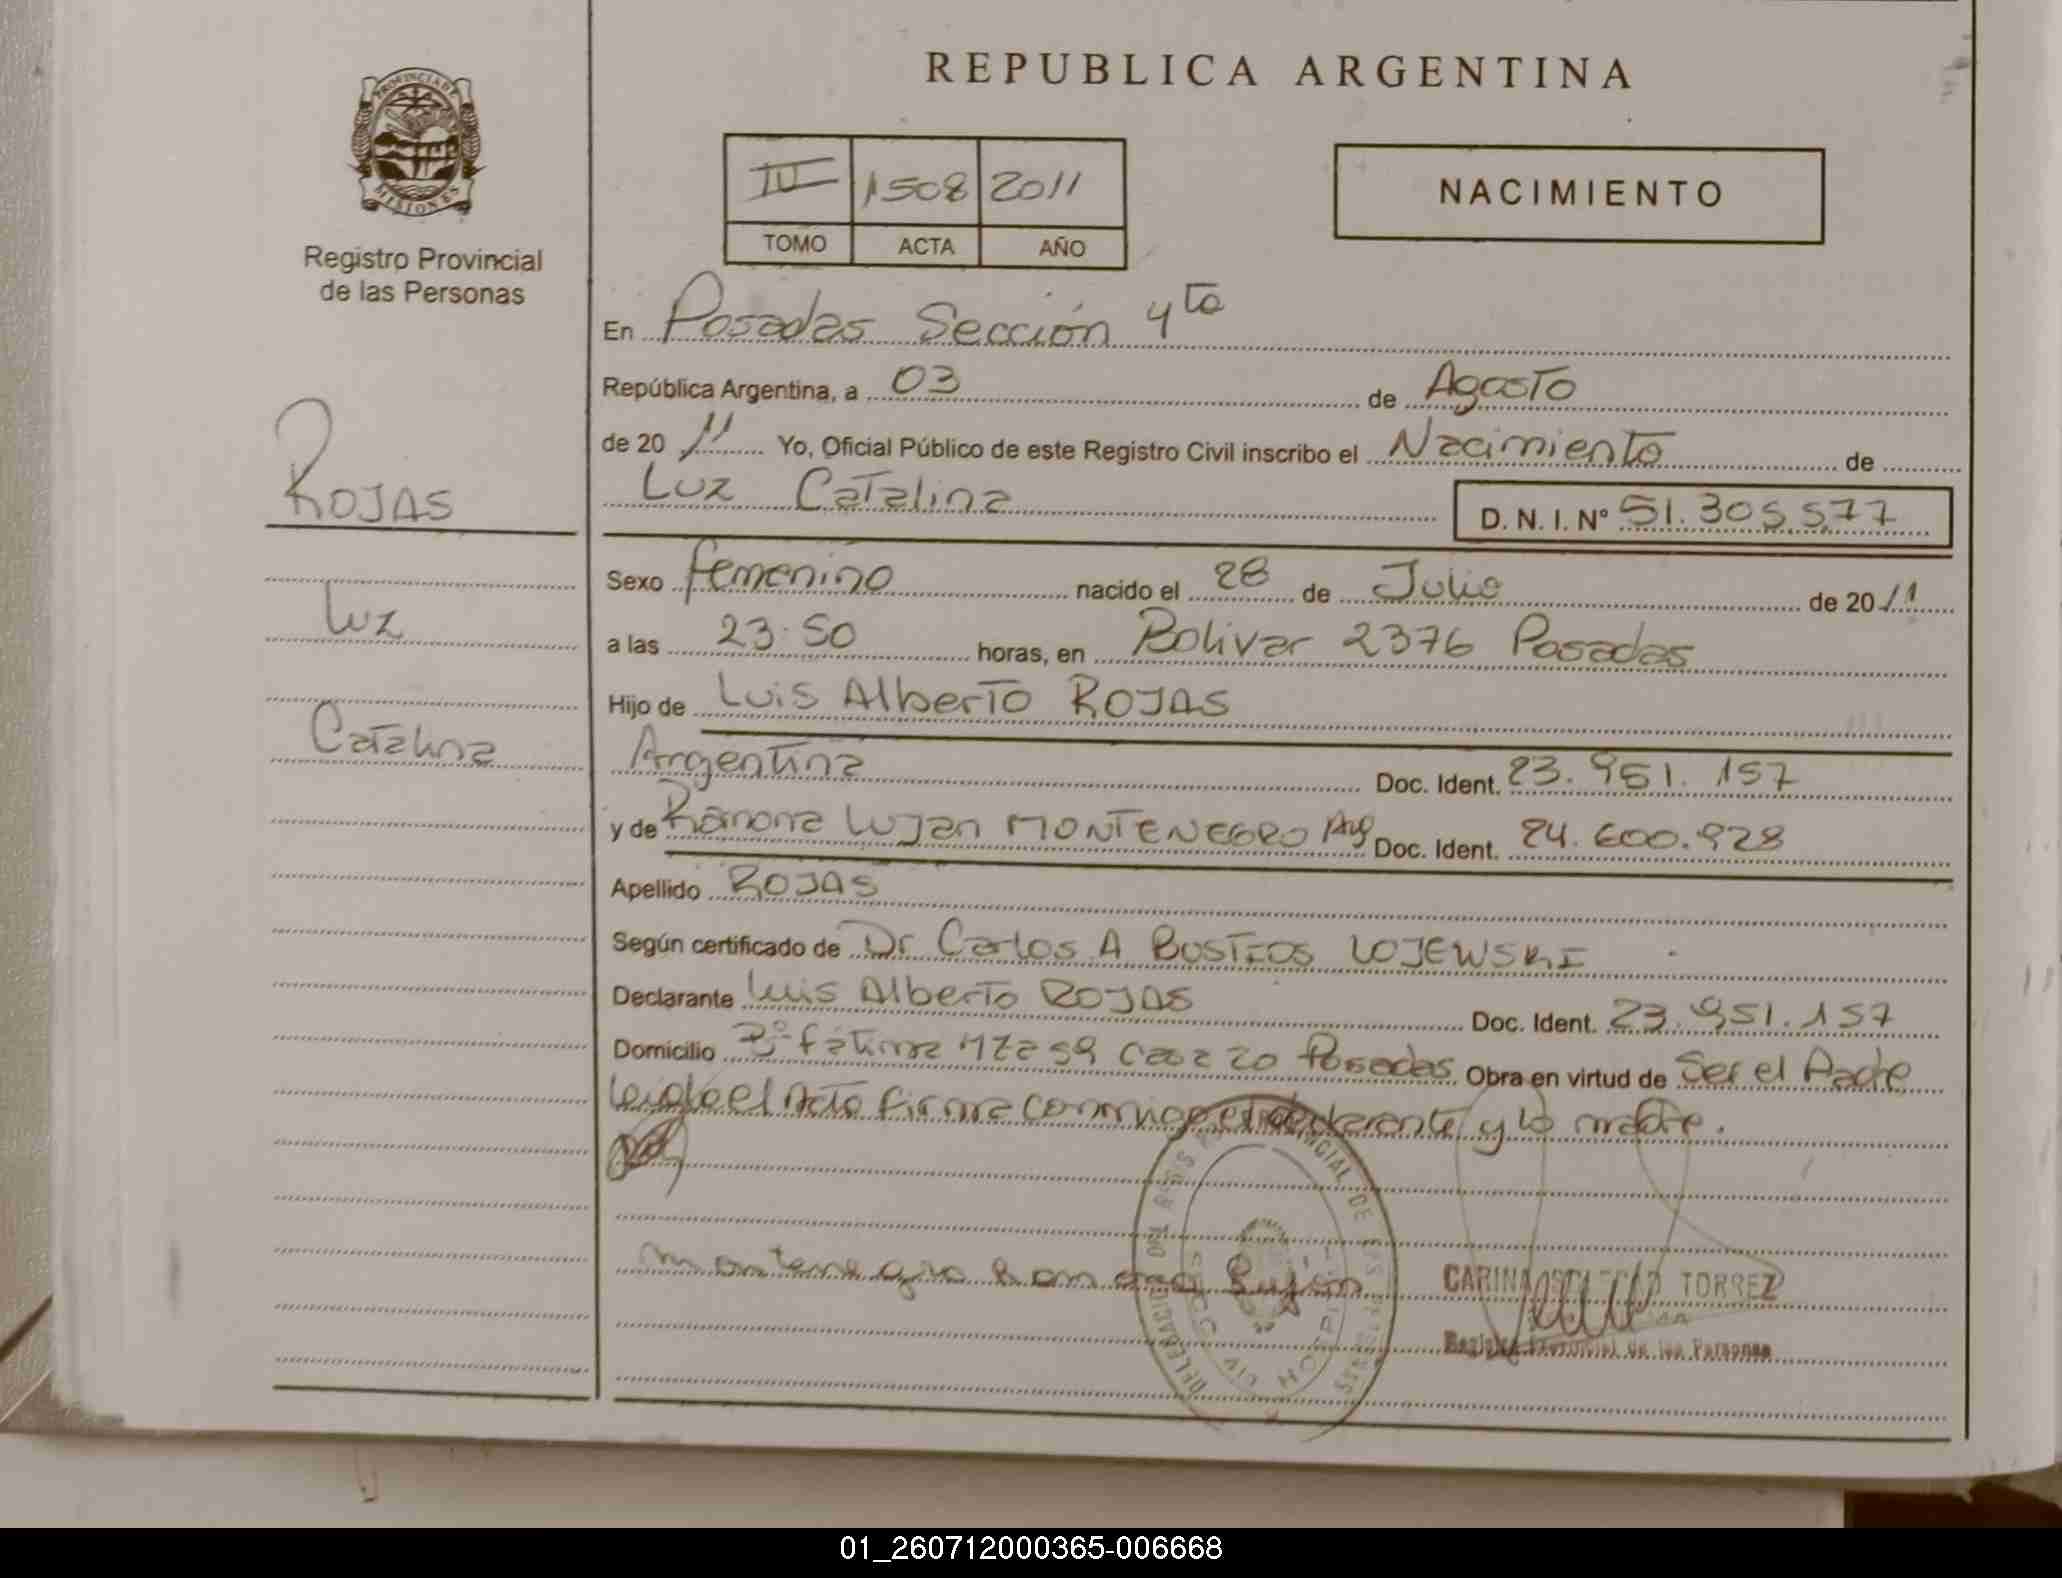 REPUBLICA ARGENTINA
PROVINCIA DE
MISIONES
Registro Provincial
de las Personas
IV 1508 2011
TOMO ACTA AÑO
NACIMIENTO
En Posadas Sección 4ta
República Argentina, a 03 de Agosto
de 20 11 Yo, Oficial Público de este Registro Civil inscribo el Nacimiento de
Luz Catalina D. N. I. Nº 51.305.577
ROJAS
Luz
Catalina
Sexo femenino nacido el 28 de Julio de 20 11
a las 23:50 horas, en Bolivar 2376 Posadas
Hijo de Luis Alberto ROJAS
Argentina Doc. Ident. 23.951.157
y de Ramona Lujan MONTENEGRO Arg Doc. Ident. 24.600.928
Apellido ROJAS
Según certificado de Dr Carlos A BUSTOS LOJEWSKI
Declarante Luis Alberto ROJAS Doc. Ident. 23.951.157
Domicilio Bº fatima Mza 59 casa 20 Posadas Obra en virtud de Ser el Padre
Leida el Acta firma conmigo el declarante y la madre.
Montenegro Ramona Lujan
CARINA TORREZ
Registro Provincial de las Personas
01_260712000365-006668